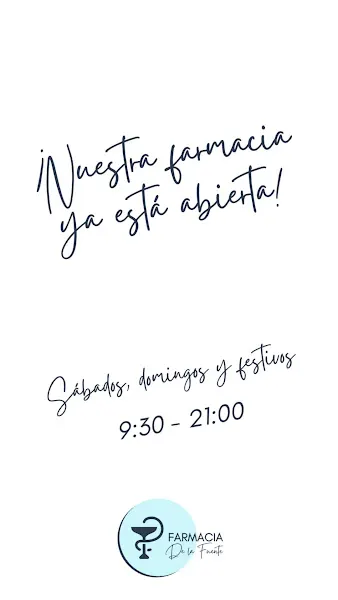 ¡Nuestra farmacia
ya está abierta!
Sábados, domingos y festivos
9:30 - 21:00
FARMACIA
De la Fuente